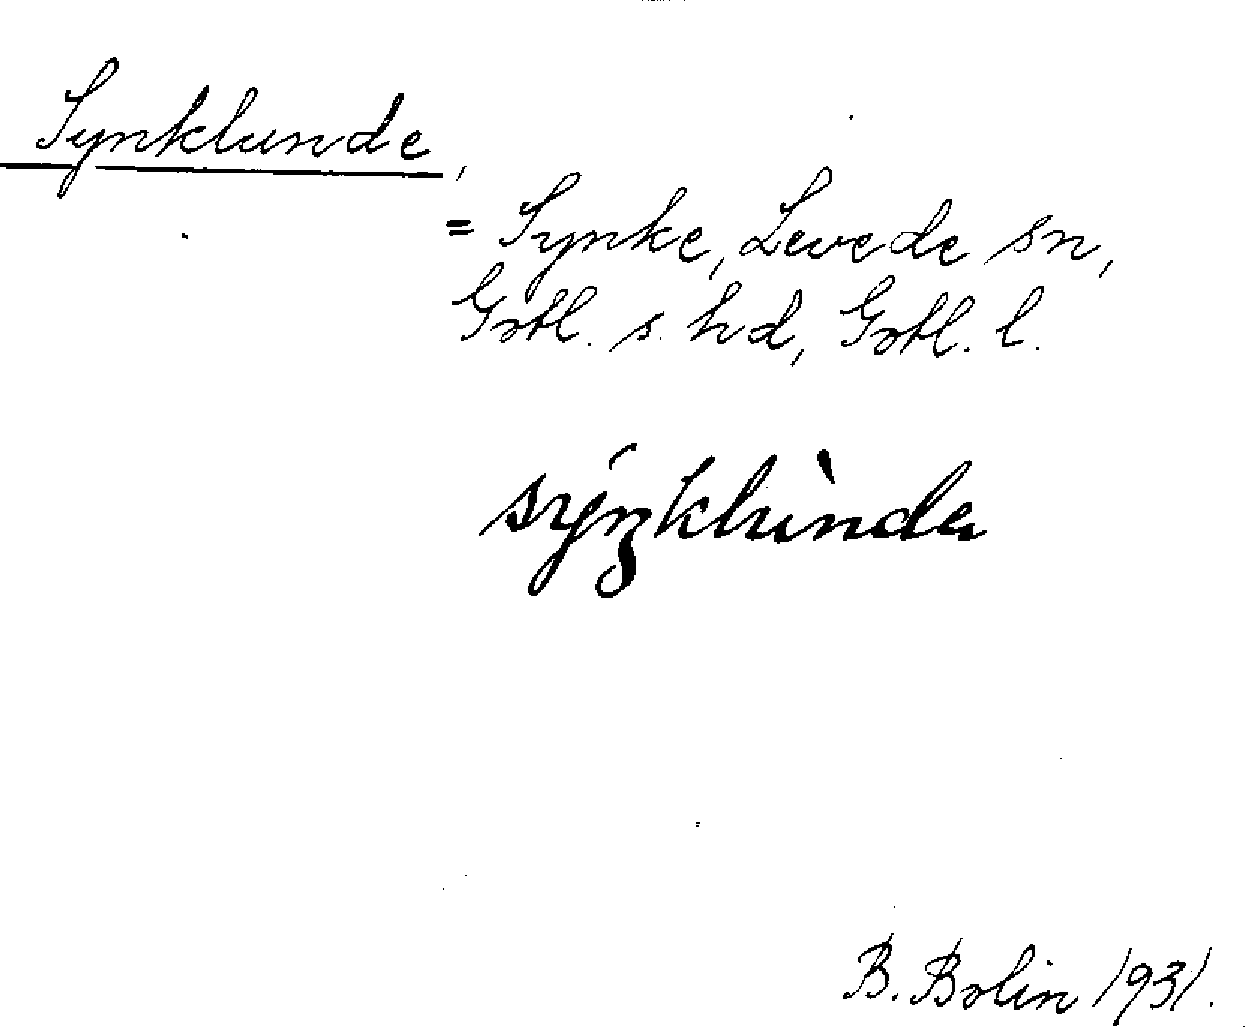 Synklunde,
= Synke, Levede sn,
Gotl. s. hd, Gotl. l.
sýŋklùnda
B. Bolin 1931.